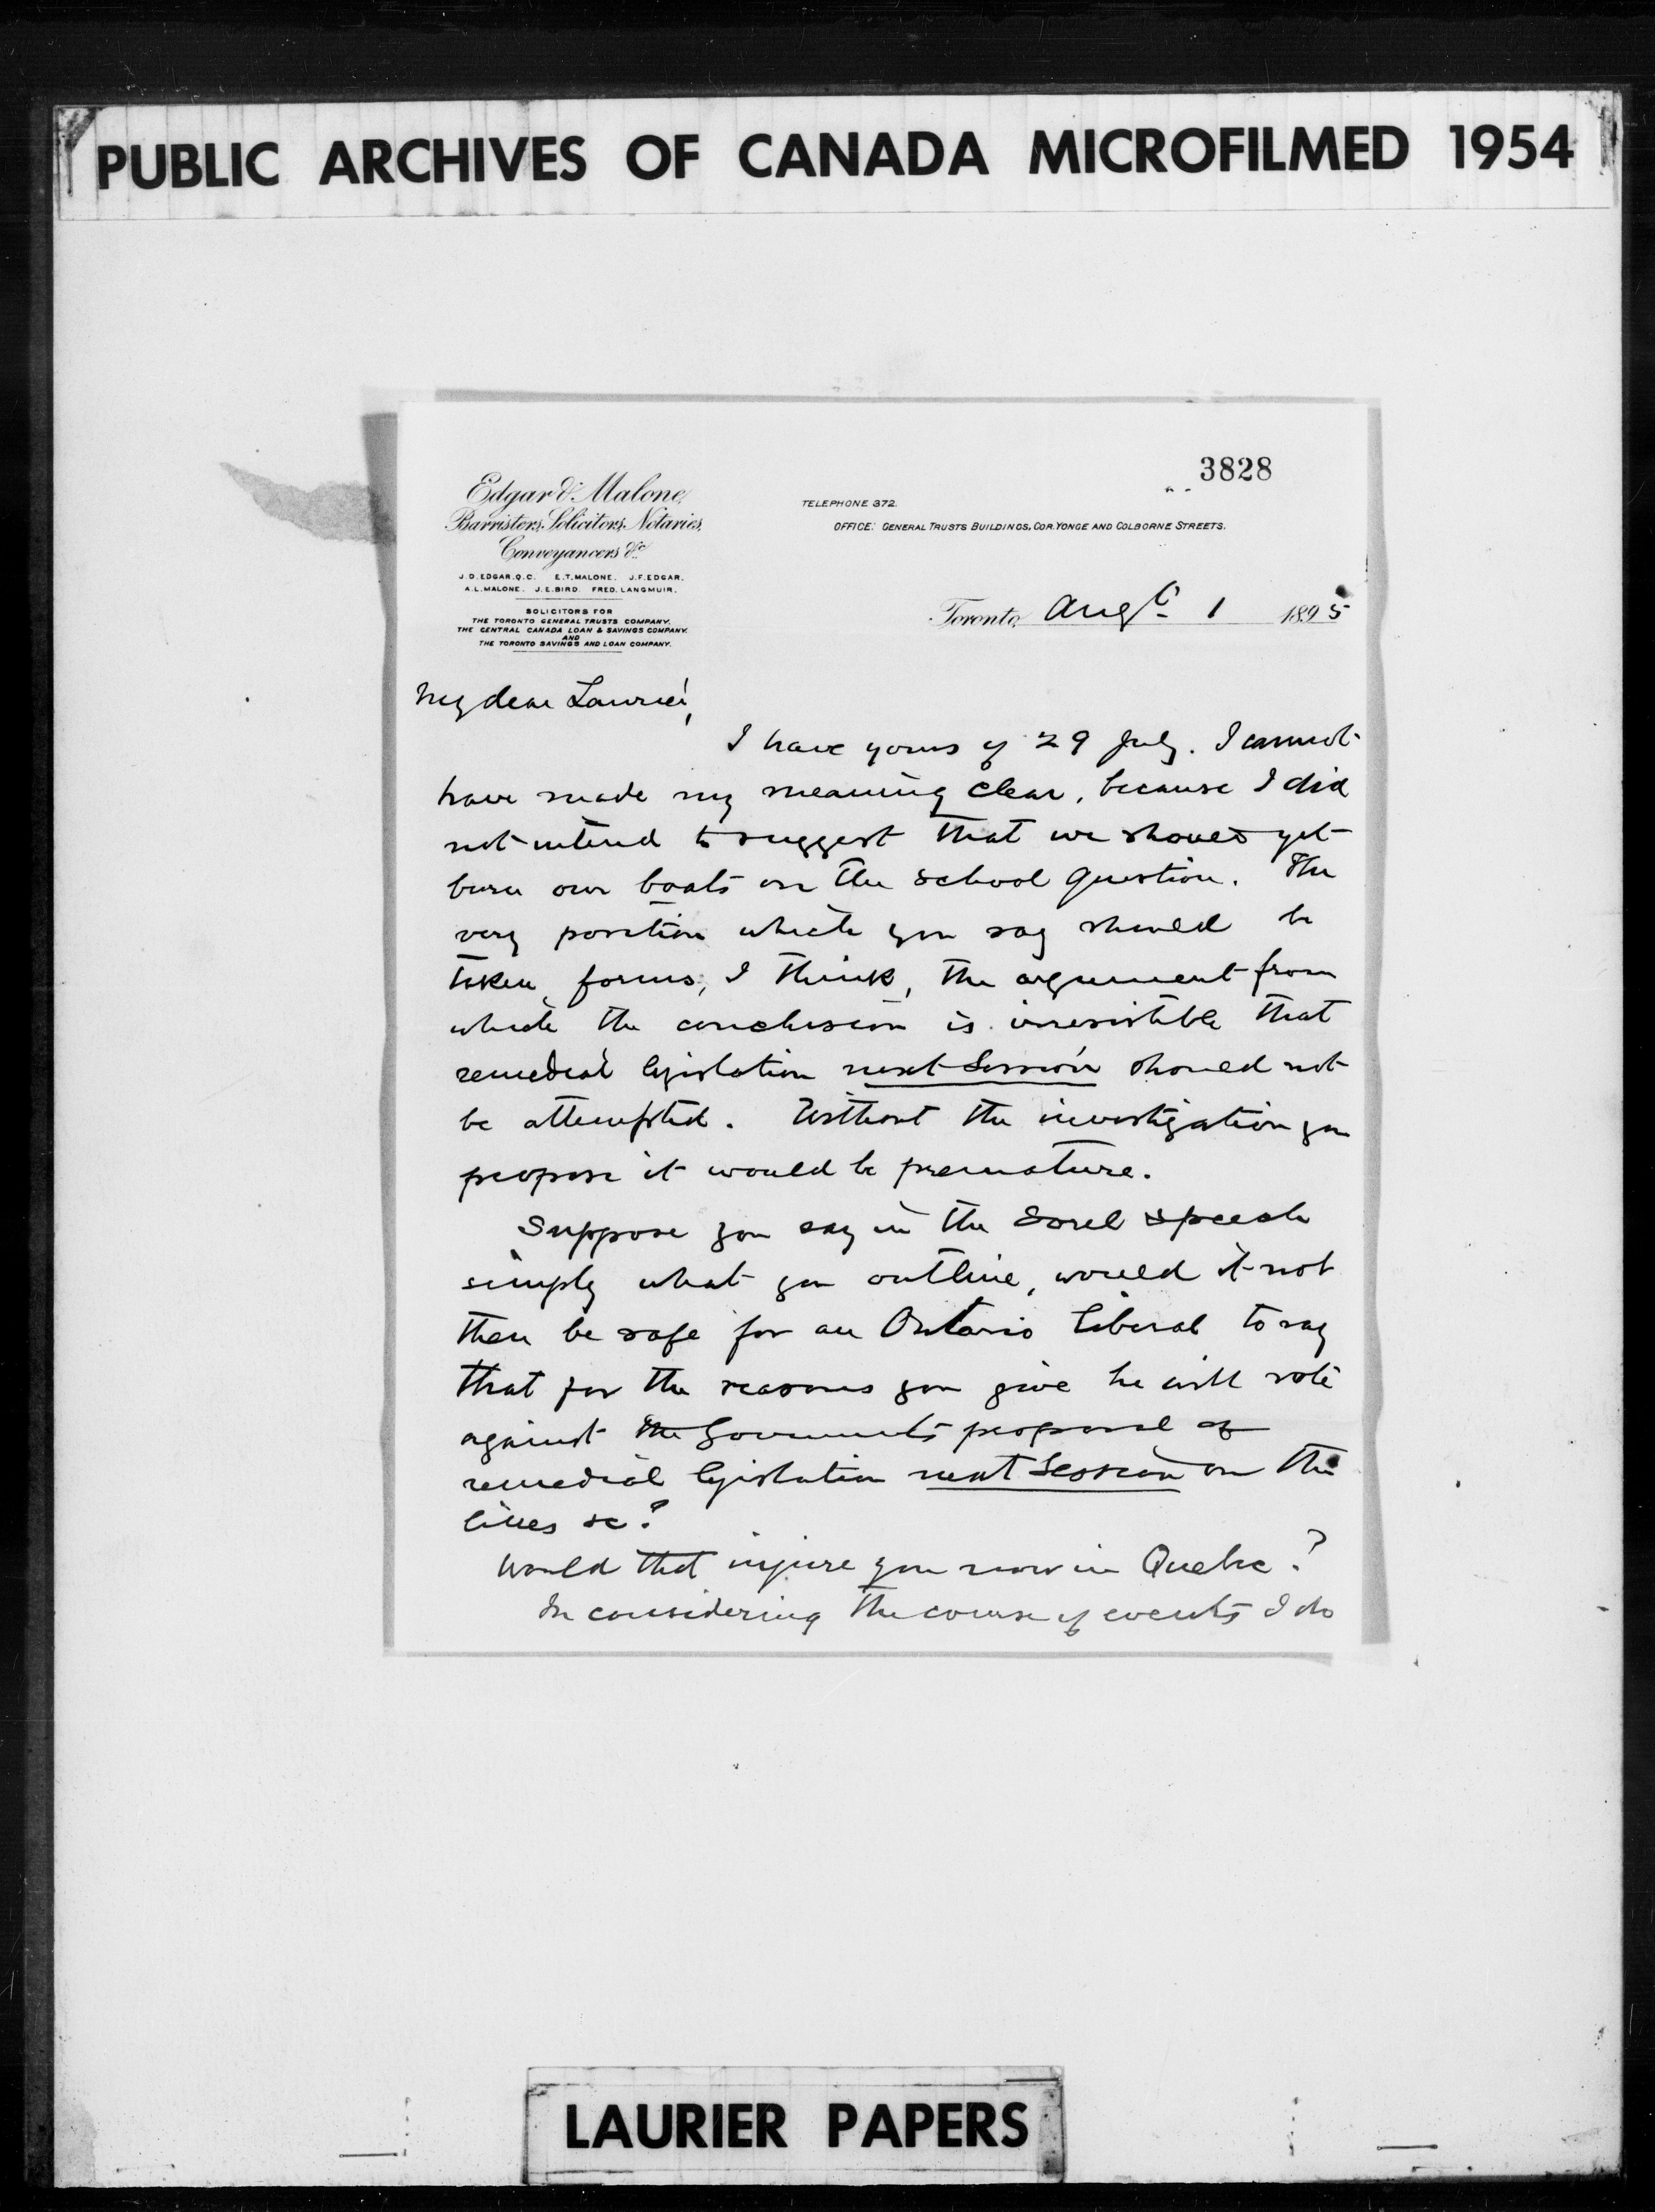 PUBLIC ARCHIVES OF CANADA MICROFILMED 1954
3828
Edgar & Malone,
Barristers, Solicitors, Notaries,
Conveyancers &c
J.D. EDGAR. Q.C. E.T. MALONE. J.F. EDGAR.
A.L. MALONE. J.E. BIRD. FRED. LANGMUIR.
SOLICITORS FOR
THE TORONTO GENERAL TRUSTS COMPANY.
THE CENTRAL CANADA LOAN & SAVINGS COMPANY.
AND
THE TORONTO SAVINGS AND LOAN COMPANY.
TELEPHONE 372.
OFFICE: GENERAL TRUSTS BUILDINGS, COR. YONGE AND COLBORNE STREETS.
Toronto, Augt 1 1895
My dear Laurier,
I have yours of 29 July. I cannot
have made my meaning clear, because I did
not intend to suggest that we should yet
burn our boats on the School question. The
very position which you say should be
taken, forms, I think, the argument from
which the conclusion is irresistible that
remedial legislation next Session should not
be attempted. Without the investigation you
propose it would be premature.
Suppose you say in the Sorel Speech
simply what you outline, would it not
then be safe for an Ontario Liberal to say
that for the reasons you give he will vote
against the Governments proposal of
remedial legislation next Session on the
lines &c?
Would that injure you now in Quebec?
In considering the course of events I do
LAURIER PAPERS